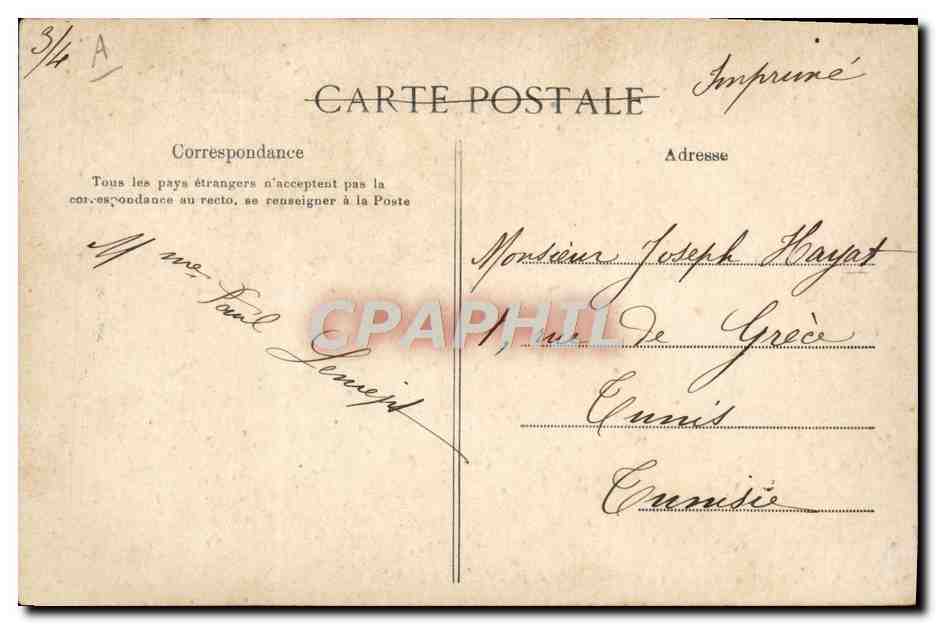 3/4 A
Imprimé
CARTE POSTALE
Correspondance
Tous les pays étrangers n'acceptent pas la
correspondance au recto, se renseigner à la Poste
Mme Paul
Adresse
Monsieur Joseph Hayat
1, rue de Grèce
Tunis
Tunisie
CPAPHIL